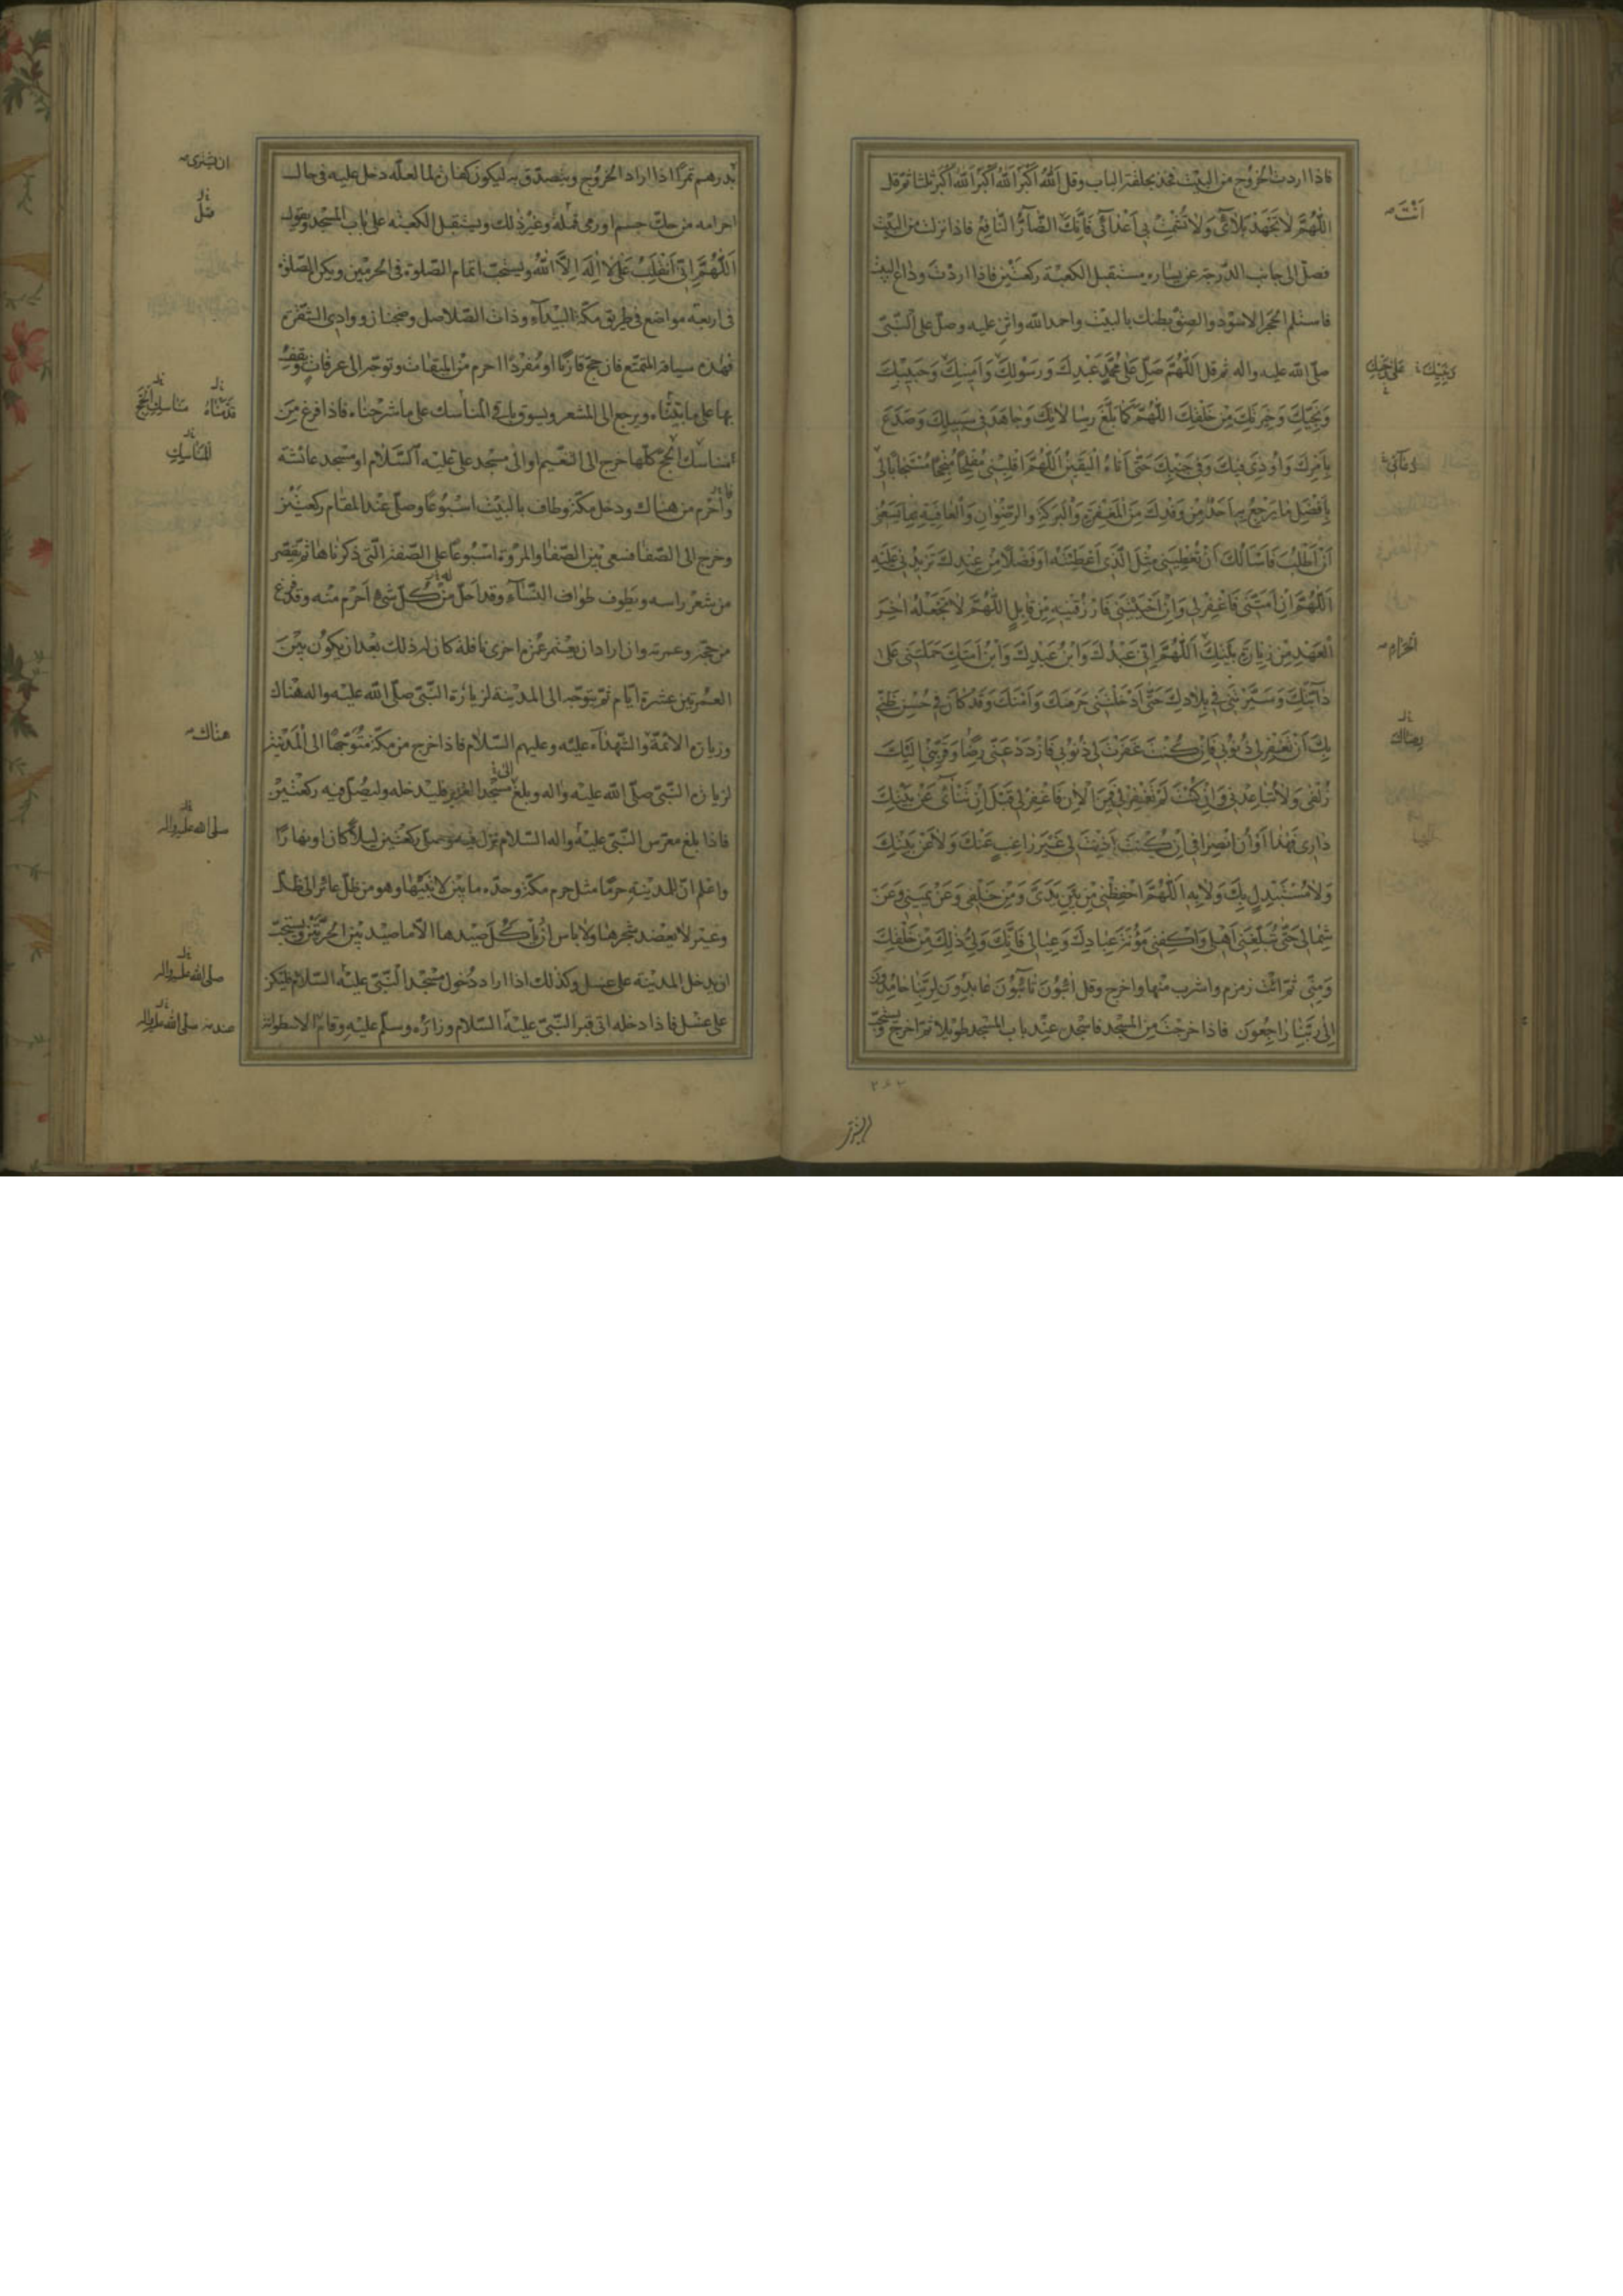 فاذا اردت الخروج من البيت فخذ بحلقة الباب وقل اَللّٰهُ اَكْبَرُ اَللّٰهُ اَكْبَرُ اَللّٰهُ اَكْبَرُ ثلثا ثم قل
اَللّٰهُمَّ لَا تَجْهَدْ بَلَآئِي وَلَا تُشْمِتْ بِي اَعْدَآئِي فَاِنَّكَ الضَّآرُّ النَّافِعُ فاذا نزلت من البيت
اَنْتَ
فصلّ الى جانب الدّرجة عن يساره مستقبل الكعبة ركعتين فاذا اردت وداع البيت
فاستلم الحجر الاسود والصق بطنك بالبيت واحمد الله واثن عليه وصلّ على النّبيّ
صلّى الله عليه واله ثم قل اَللّٰهُمَّ صَلِّ عَلٰى مُحَمَّدٍ عَبْدِكَ وَرَسُولِكَ وَاَمِينِكَ وَحَبِيبِكَ
وَنَجِيِّكَ وَخِيَرَتِكَ مِنْ خَلْقِكَ اَللّٰهُمَّ كَمَا بَلَّغَ رِسَالَاتِكَ وَجَاهَدَ فِي سَبِيلِكَ وَصَدَعَ
بِاَمْرِكَ وَاُوذِيَ فِيكَ وَفِي جَنْبِكَ حَتّٰى اَتَاهُ الْيَقِينُ اَللّٰهُمَّ اقْلِبْنِي مُفْلِحًا مُنْجِحًا مُسْتَجَابًا لِي
بِاَفْضَلِ مَا يَرْجِعُ بِهِ اَحَدٌ مِنْ وَفْدِكَ مِنَ الْمَغْفِرَةِ وَالْبَرَكَةِ وَالرِّضْوَانِ وَالْعَافِيَةِ
اَنْ اَطْلُبَ فَاَسْاَلُكَ اَنْ تُعْطِيَنِي مِثْلَ الَّذِي اَعْطَيْتَهُ اَوْ فَضْلًا مِنْ عِنْدِكَ تَزِيدُنِي عَلَيْهِ
اَللّٰهُمَّ اِنْ اَمَتَّنِي فَاغْفِرْ لِي وَاِنْ اَحْيَيْتَنِي فَارْزُقْنِيهِ مِنْ قَابِلٍ اَللّٰهُمَّ لَا تَجْعَلْهُ اٰخِرَ
الْعَهْدِ مِنْ زِيَارَةِ بَيْتِكَ اَللّٰهُمَّ اِنِّي عَبْدُكَ وَابْنُ عَبْدِكَ وَابْنُ اَمَتِكَ حَمَلْتَنِي عَلٰى
الْحَرَامِ
دَآبَّتِكَ وَسَيَّرْتَنِي فِي بِلَادِكَ حَتّٰى اَدْخَلْتَنِي حَرَمَكَ وَاَمْنَكَ وَقَدْ كَانَ فِي حُسْنِ ظَنِّي
بِكَ اَنْ تَغْفِرَ لِي ذُنُوبِي فَاِنْ كُنْتَ غَفَرْتَ لِي ذُنُوبِي فَازْدَدْ عَنِّي رِضًا وَقَرِّبْنِي اِلَيْكَ
زُلْفٰى وَلَا تُبَاعِدْنِي وَاِنْ كُنْتَ لَمْ تَغْفِرْ لِي فَمِنَ الْاٰنَ فَاغْفِرْ لِي قَبْلَ اَنْ تَنْاٰى عَنْ بَيْتِكَ
دَارِي فَهٰذَا اَوَانُ انْصِرَافِي اِنْ كُنْتَ اَذِنْتَ لِي غَيْرَ رَاغِبٍ عَنْكَ وَلَا عَنْ بَيْتِكَ
وَلَا مُسْتَبْدِلٍ بِكَ وَلَا بِهِ اَللّٰهُمَّ احْفَظْنِي مِنْ بَيْنِ يَدَيَّ وَمِنْ خَلْفِي وَعَنْ يَمِينِي وَعَنْ
شِمَالِي حَتّٰى تُبَلِّغَنِي اَهْلِي وَاكْفِنِي مَؤُنَةَ عِبَادِكَ وَعِيَالِي فَاِنَّكَ وَلِيُّ ذٰلِكَ مِنْ خَلْقِكَ
وَمِنِّي ثم ائت زمزم واشرب منها واخرج وقل اٰئِبُونَ تَآئِبُونَ عَابِدُونَ لِرَبِّنَا حَامِدُونَ
اِلٰى رَبِّنَا رَاجِعُونَ فاذا خرجت من المسجد فاسجد عند باب المسجد طويلا ثم اخرج
بدرهم تمرًا اذا اراد الخروج ويتصدّق به ليكون كفارة لما لعلّه دخل عليه في حال
احرامه من حكّ جسم او رمى قملة وغير ذلك وليستقبل الكعبة على باب المسجد ويقول
اَللّٰهُمَّ اِنِّي اَنْقَلِبُ عَلٰى لَا اِلٰهَ اِلَّا اللّٰهُ ويستحبّ اتمام الصّلوة في الحرمين ويكره الصّلوة
في اربعة مواضع في طريق مكّة البيدآء وذات الصّلاصل وضجنان ووادي الشقرة
فهذه سياقة المتمتّع فان حجّ قارنًا او مفردًا احرم من الميقات وتوجّه الى عرفات
بها على ما بيّنّاه ويرجع الى المشعر ويسوق باقي المناسك على ما شرحناه فاذا فرغ من
مناسك الحجّ كلّها خرج الى التنعيم او الى مسجد علي عليه السّلام او مسجد عائشة
واحرم من هناك ودخل مكّة وطاف بالبيت اسبوعًا وصلّى عند المقام ركعتين
وخرج الى الصّفا فسعى بين الصّفا والمروة اسبوعًا على الصّفة الّتي ذكرناها ثم يقصّر
من شعر راسه ويطوف طواف النّسآء وقد احلّ من كلّ شيء احرم منه وقد فرغ
من حجّته وعمرته وان اراد ان يعتمر عمرة اخرى نافلة كان له ذلك بعد ان يكون بين
العمرتين عشرة ايّام ثم يتوجّه الى المدينة لزيارة النّبيّ صلّى الله عليه واله هناك
وزيارة الائمّة والشّهدآء عليه وعليهم السّلام فاذا خرج من مكّة متوجّها الى المدينة
هناك
لزيارة النّبيّ صلّى الله عليه واله وبلغ مسجد الغدير فليدخله وليصلّ فيه ركعتين
فاذا بلغ معرّس النّبيّ عليه واله السّلام نزل فيه وصلّى ركعتين ليلا كان او نهارًا
صلى الله عليه واله
واعلم انّ للمدينة حرمًا مثل حرم مكّة وحدّه ما بين لابتيها وهو من ظلّ عائر الى ظلّ
وعير لا يعضد شجرها ولا باس ان يؤكل صيدها الّا ما صيد بين الحرّتين ويستحبّ
ان يدخل المدينة على غسل وكذلك اذا اراد دخول مسجد النّبيّ عليه السّلام فليكن
صلى الله عليه واله
على غسل فاذا دخله اتى قبر النّبيّ عليه السّلام وزاره وسلّم عليه وقام
صلى الله عليه واله